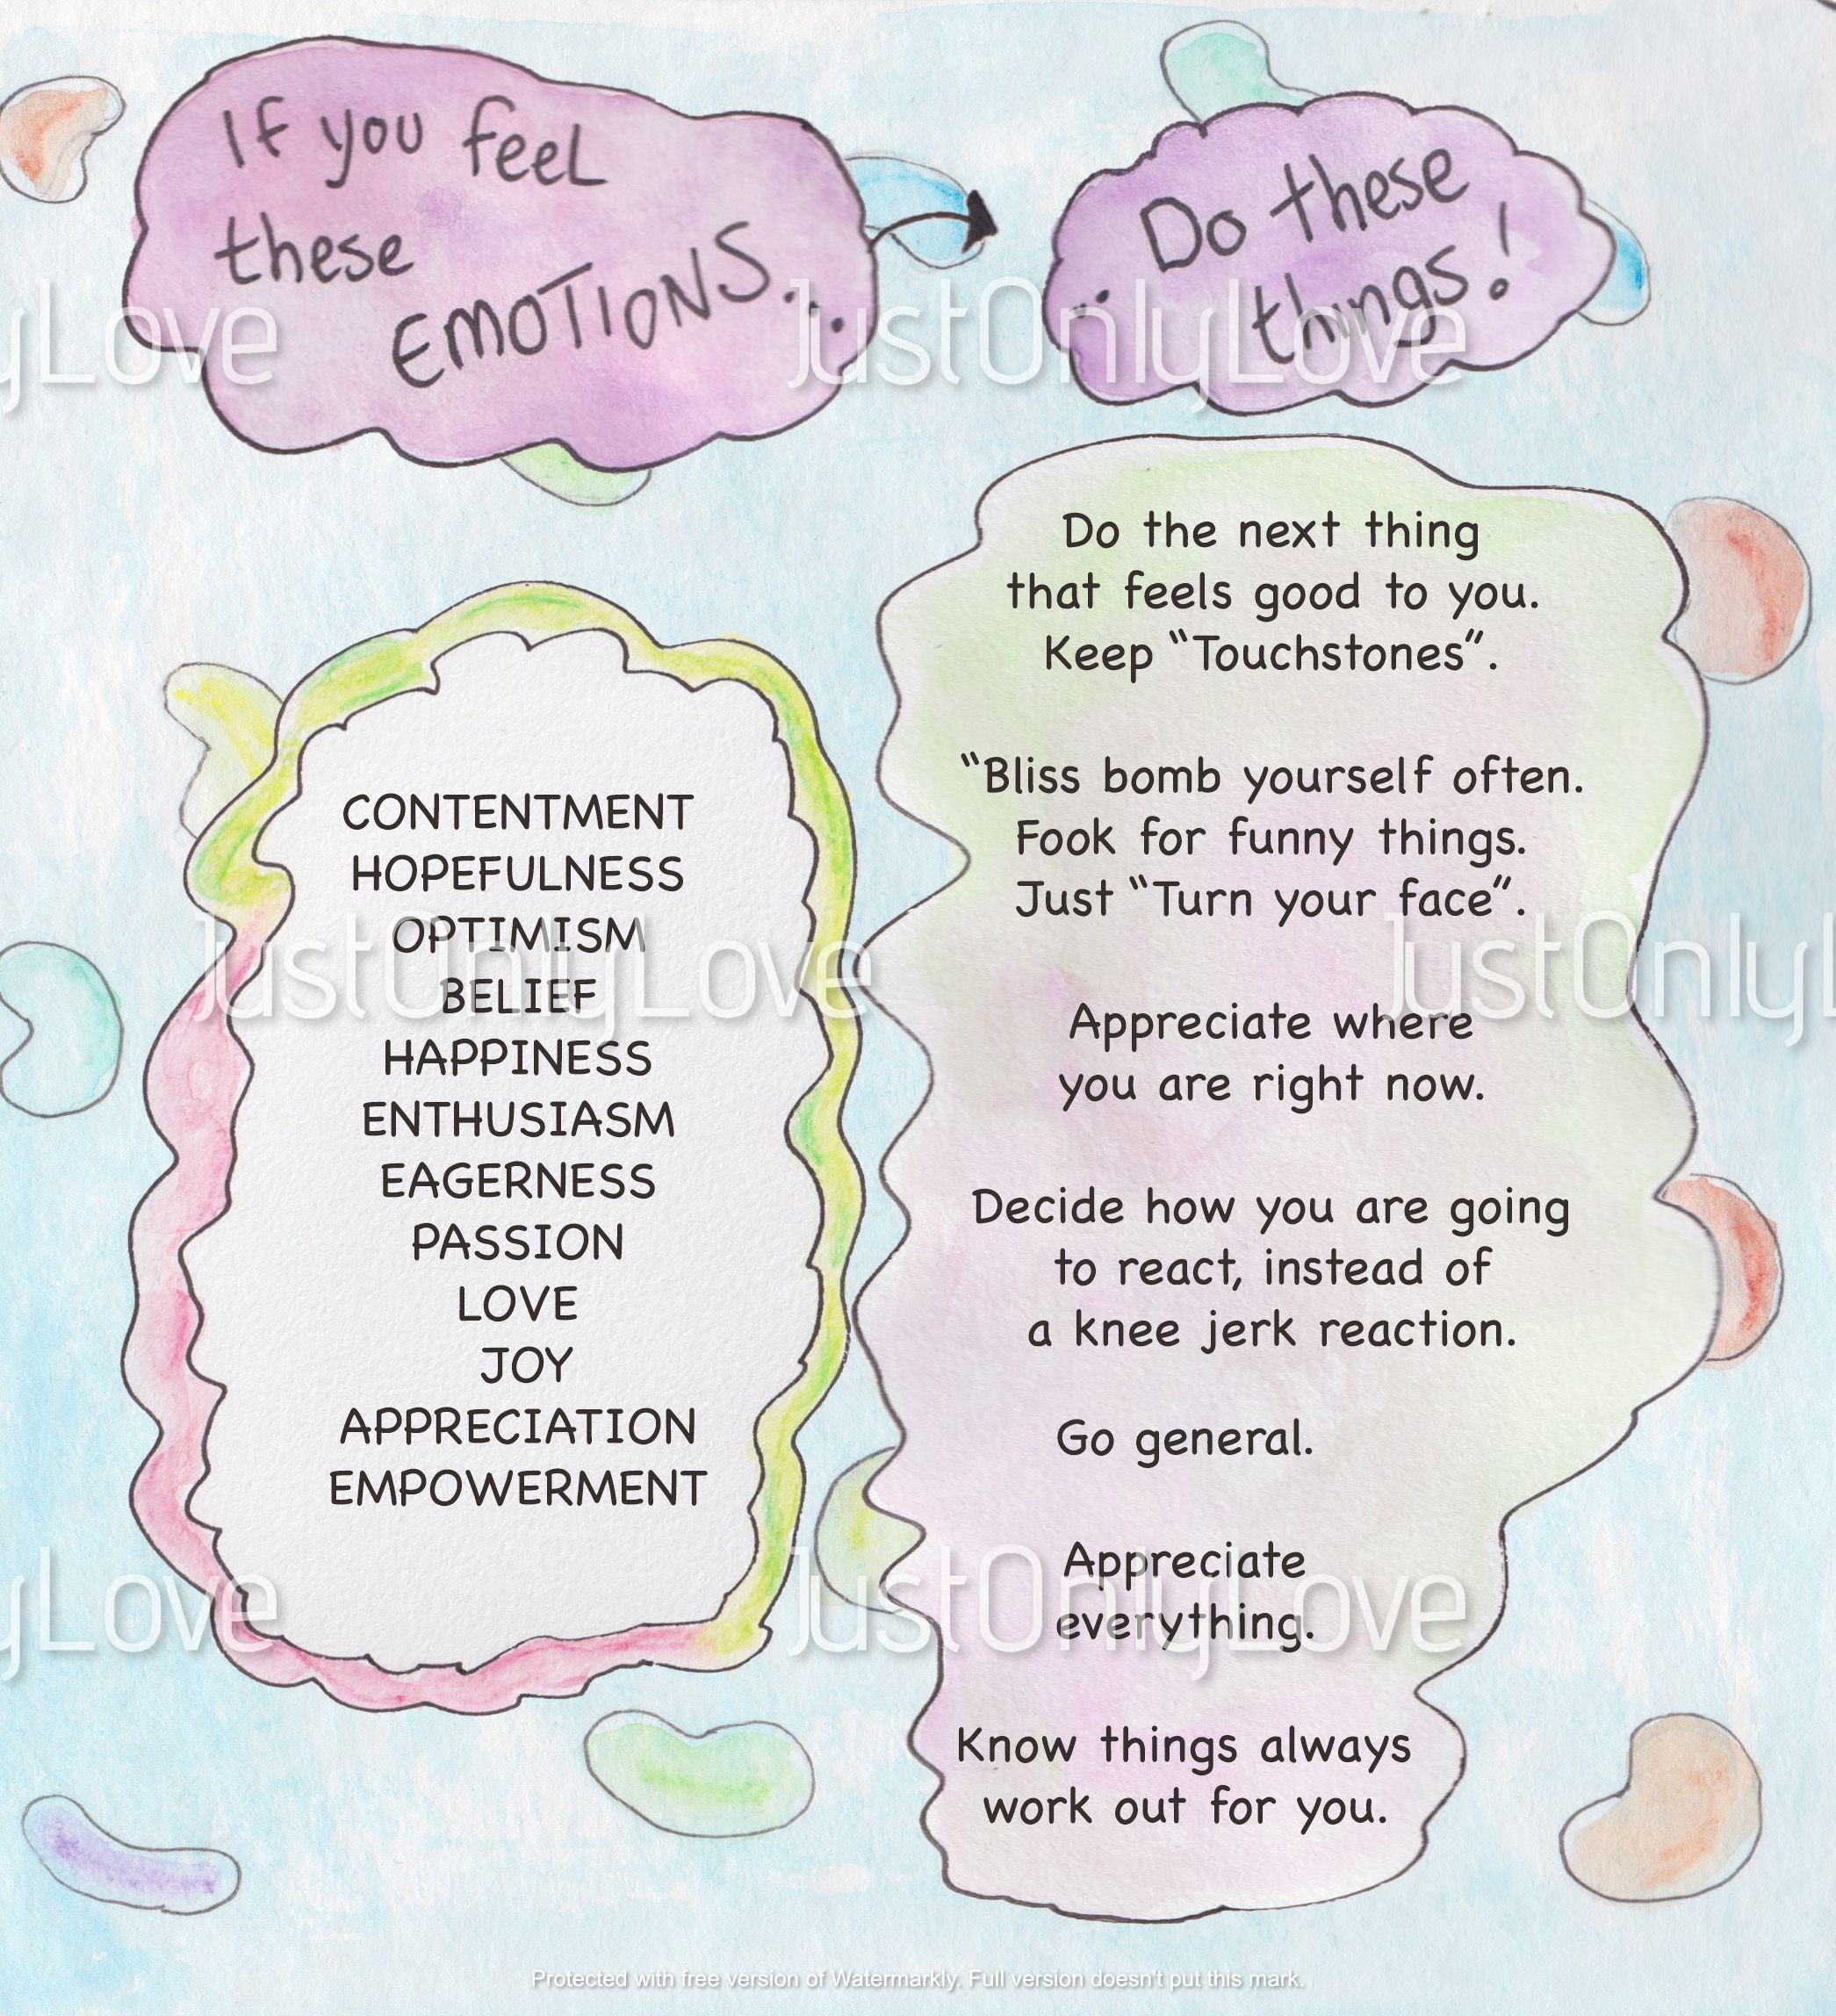 If you feel
these
EMOTIONS...
.. Do these
things!
CONTENTMENT
HOPEFULNESS
OPTIMISM
BELIEF
HAPPINESS
ENTHUSIASM
EAGERNESS
PASSION
LOVE
JOY
APPRECIATION
EMPOWERMENT
Do the next thing
that feels good to you.
Keep “Touchstones”.
“Bliss bomb yourself often.
Fook for funny things.
Just “Turn your face”.
Appreciate where
you are right now.
Decide how you are going
to react, instead of
a knee jerk reaction.
Go general.
Appreciate
everything.
Know things always
work out for you.
yLove
JustOnlyLove
JustOnlyLove
JustOnlyL
yLove
JustOnlyLove
Protected with free version of Watermarkly. Full version doesn't put this mark.